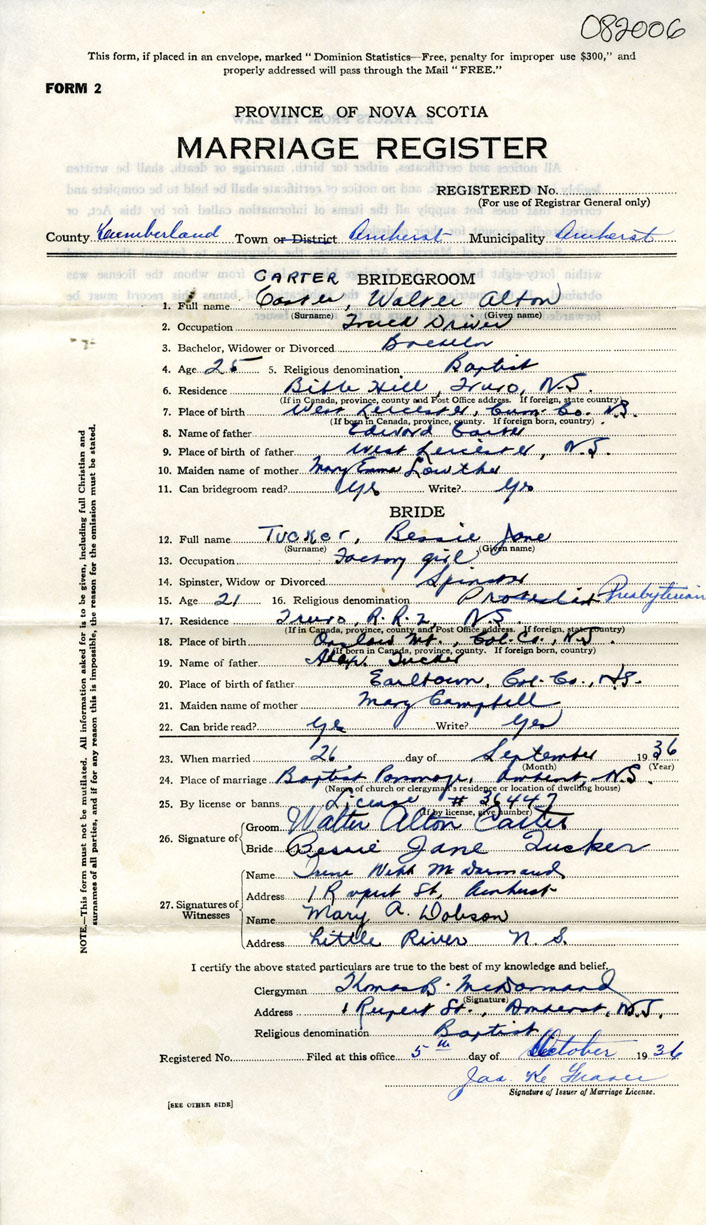 082006
This form, if placed in an envelope, marked "Dominion Statistics—Free, penalty for improper use $300," and
properly addressed will pass through the Mail "FREE."
FORM 2
PROVINCE OF NOVA SCOTIA
MARRIAGE REGISTER
REGISTERED No.
(For use of Registrar General only)
County Cumberland Town or District Amherst Municipality Amherst
CARTER BRIDEGROOM
1. Full name Carter, Walter Alton
(Surname) (Given name)
2. Occupation Truck Driver
3. Bachelor, Widower or Divorced Bachelor
4. Age 25 5. Religious denomination Baptist
6. Residence Bible Hill, Truro, N.S.
(If in Canada, province, county and Post Office address. If foreign, state country)
7. Place of birth West Leicester, Cum. Co. N.S.
(If born in Canada, province, county. If foreign born, country)
8. Name of father Edward Carter
9. Place of birth of father West Leicester, N.S.
10. Maiden name of mother Mary Emma Lowther
11. Can bridegroom read? Yes Write? Yes
BRIDE
12. Full name Tucker, Bessie Jane
(Surname) (Given name)
13. Occupation Factory girl
14. Spinster, Widow or Divorced Spinster
15. Age 21 16. Religious denomination Protestant Presbyterian
17. Residence Truro, R.R. 2, N.S.
(If in Canada, province, county and Post Office address. If foreign, state country)
18. Place of birth Mt., Col. Co., N.S.
(If born in Canada, province, county. If foreign born, country)
19. Name of father Alex. Tucker
20. Place of birth of father Earltown, Col. Co., N.S.
21. Maiden name of mother Mary Campbell
22. Can bride read? Yes Write? Yes
23. When married 26 day of September 1936
(Month) (Year)
24. Place of marriage Baptist Parsonage, Amherst, N.S.
(Name of church or clergyman's residence or location of dwelling house)
25. By license or banns License # 36447
(If by license, give number)
26. Signature of Groom Walter Alton Carter
Bride Bessie Jane Tucker
27. Signatures of Witnesses
Name Irene Webb McDormand
Address 1 Rupert St, Amherst
Name Mary A. Dobson
Address Little River N.S.
I certify the above stated particulars are true to the best of my knowledge and belief.
Clergyman Thomas B. McDormand
(Signature)
Address 1 Rupert St., Amherst, N.S.
Religious denomination Baptist
Registered No. Filed at this office 5th day of October 1936
Jas
Signature of Issuer of Marriage License.
[SEE OTHER SIDE]
NOTE.—This form must not be mutilated. All information asked for is to be given, including full Christian and
surnames of all parties, and if for any reason this is impossible, the reason for the omission must be stated.